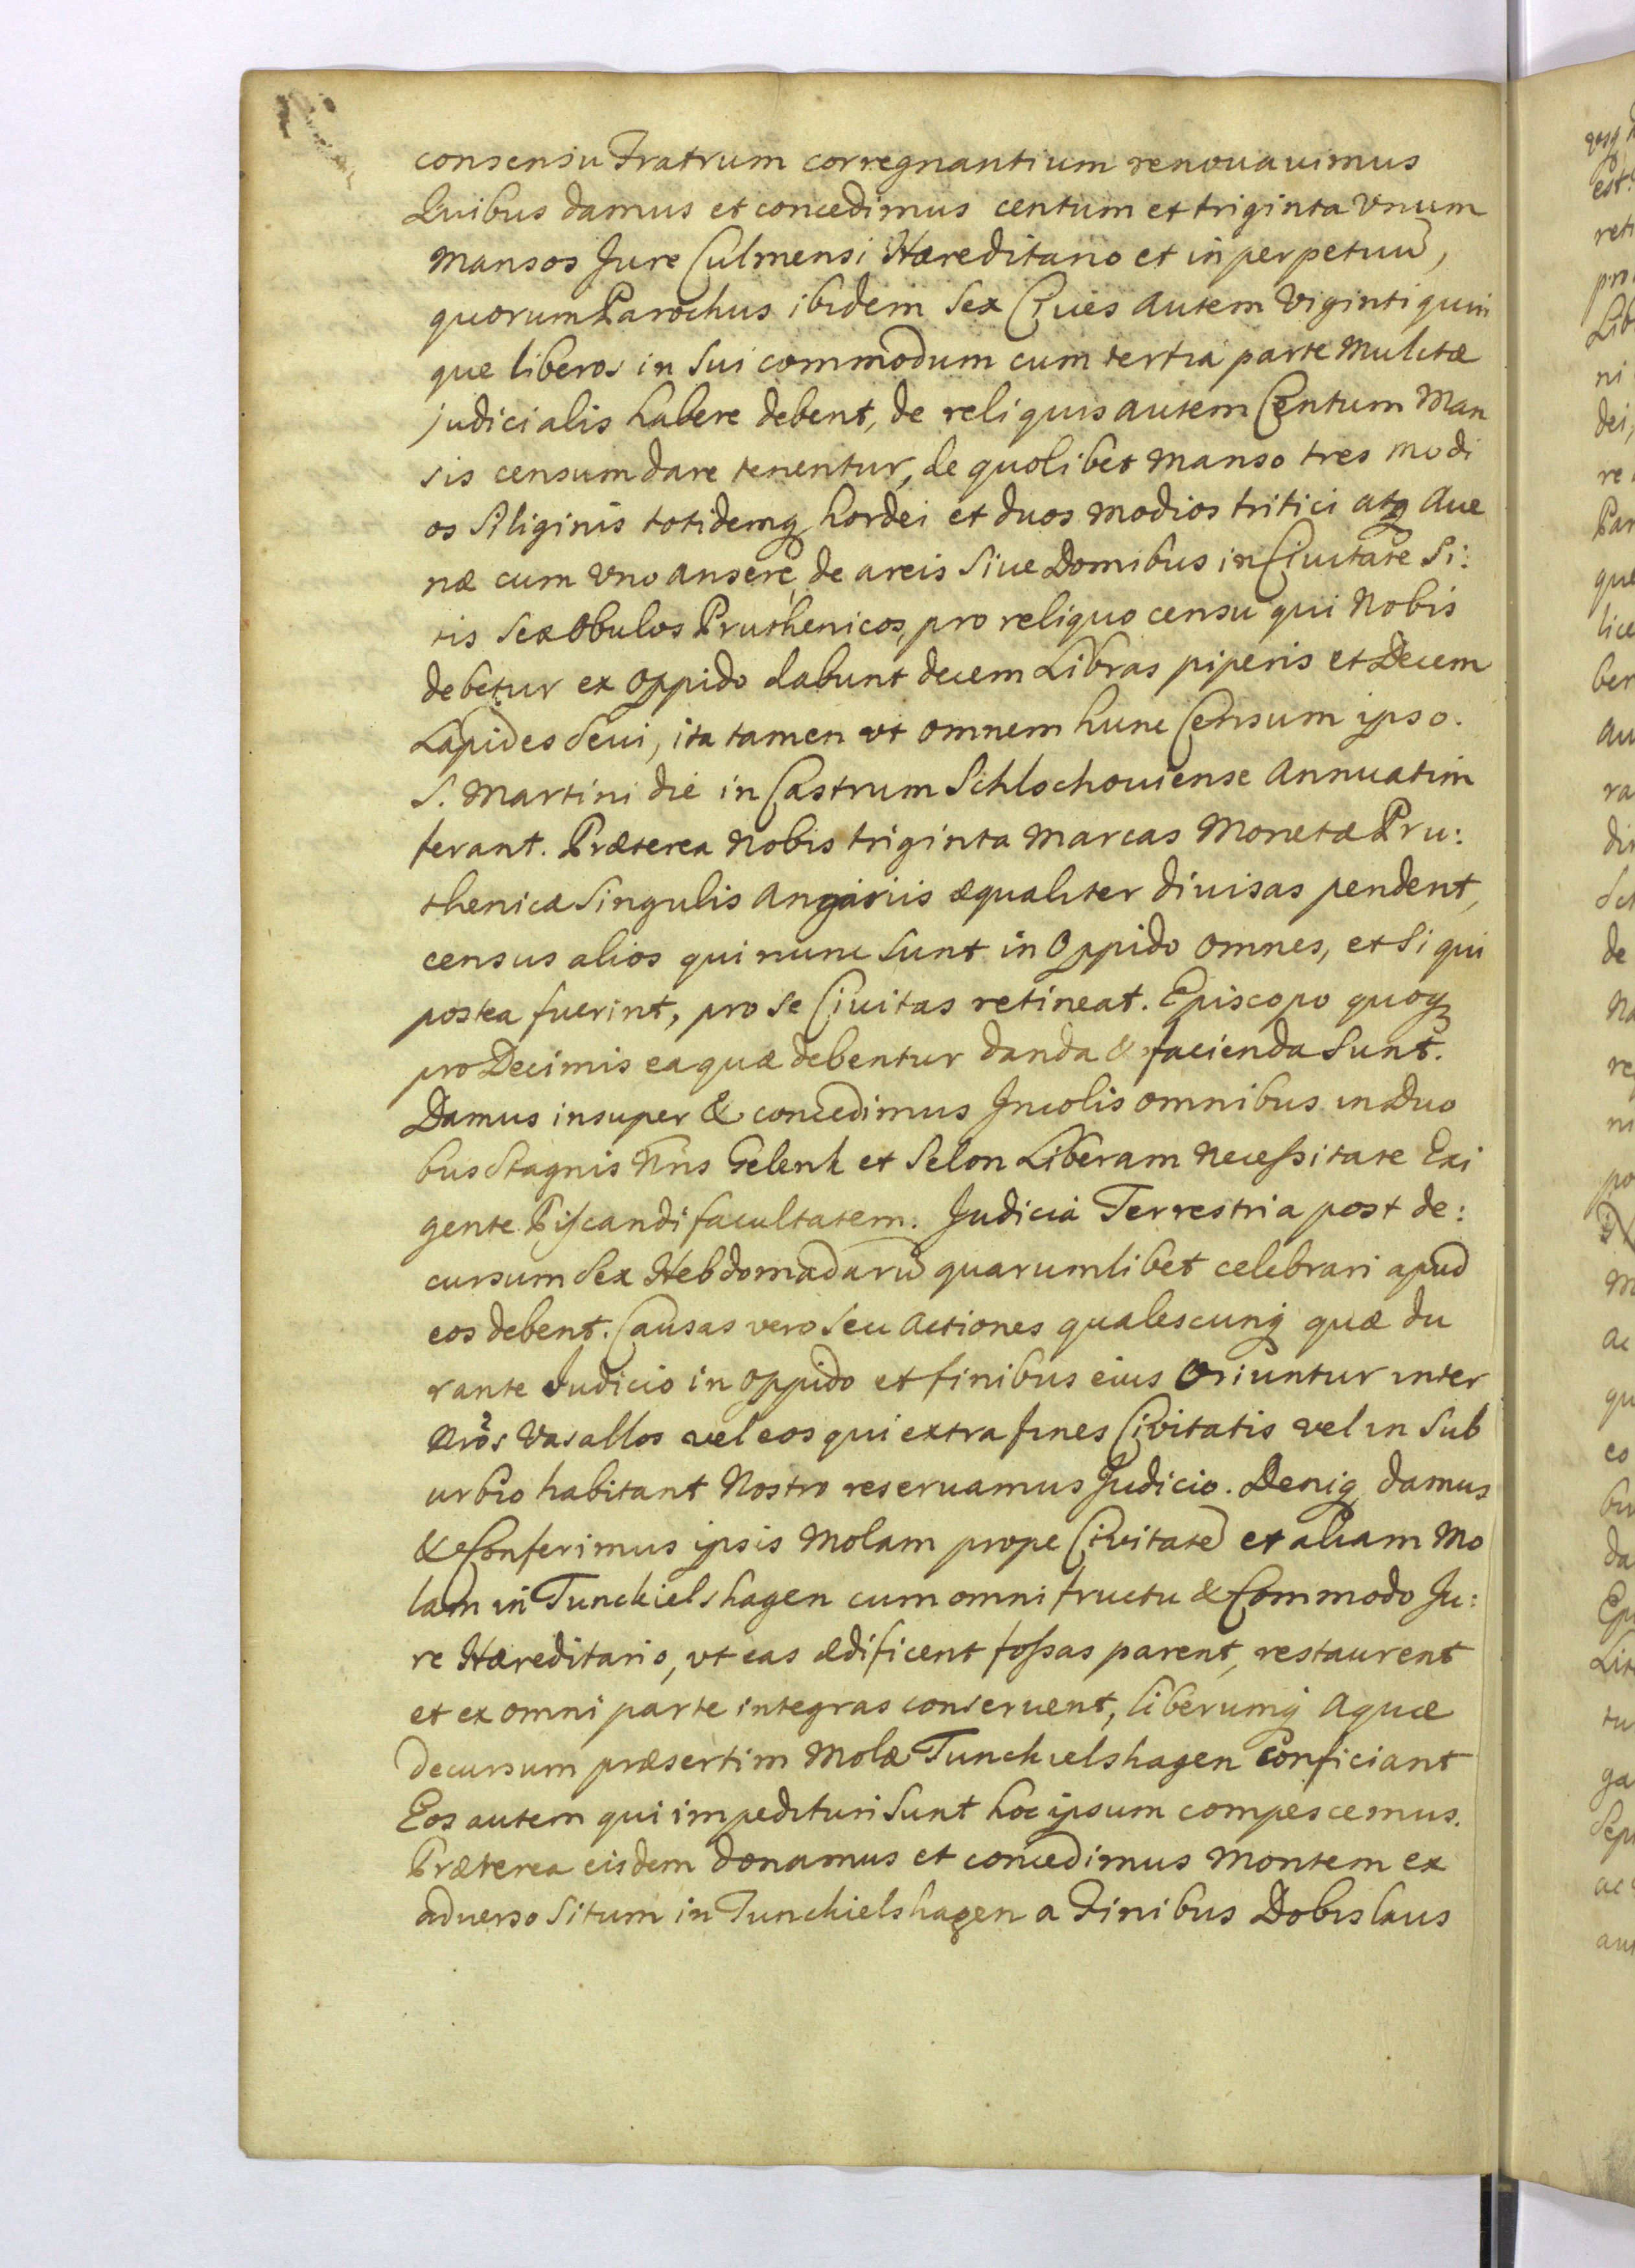 consensu Fratrum corregnantium renouauimus
Quibus damus et concedimus centum et triginta Vnum
Mansos Jure Culmensi Hæreditario et in perpetuũ,
quorum Parochus ibidem Sex Ciues autem Viginti quin
que liberos in Sui commodum cum tertia parte Mulctæ
judicialis habere debent, de reliquis autem Centum Man
sis censum dare tenentur, de quolibet Manso tres modi
os Siliginis totidemq hordei et duos modios tritici atq Aue
næ cum Vno ansere, de areis Siue Domibus in Ciuitate Si:
tis Sex Obulos Pruthenicos, pro reliquo censu qui Nobis
debetur ex Oppido dabunt decem Libras piperis et Decem
Lapides Seui, ita tamen vt omnem hunc Censum ipso.
S. Martini die in Castrum Schlochouiense Annuatim
ferant. Præterea Nobis triginta Marcas Monetæ Pru:
thenicæ Singulis Angariis æqualiter diuisas pendent,
census alios qui nunc Sunt in Oppido omnes, et Si qui
postea fuerint, pro se Ciuitas retineat. Episcopo quoq
pro Decimis ea quæ debentur danda & facienda Sunt.
Damus insuper & concedimus Incolis omnibus in Duo
bus Stagnis Nris Gelenk et Selon Liberam Necessitate Exi
gente Piscandi facultatem. Judicia Terrestria post de:
cursum Sex Hebdomadarũ quarumlibet celebrari apud
eos debent. Causas vero Seu Actiones qualescunq quæ du
rante Judicio in Oppido et finibus eius Oriuntur inter
Nros Vasallos vel eos qui extra fines Civitatis vel in Sub
urbio habitant Nostro reseruamus Judicio. Deniq damus
& Conferimus ipsis Molam prope Civitatẽ et aliam Mo
lam in Tunckielshagen cum omni fructu & Commodo Ju:
re Hæreditario, vt eas ædificent fossas parent, restaurent
et ex omni parte integras conseruent, liberumq Aquæ
decursum præsertim Molæ Tunckielshagen Conficiant
Eos autem qui impedituri Sunt hoc ipsum compescemus.
Præterea eisdem donamus et concedimus Montem ex
aduerso Situm in Tunckielshagen a Finibus Dobislaus